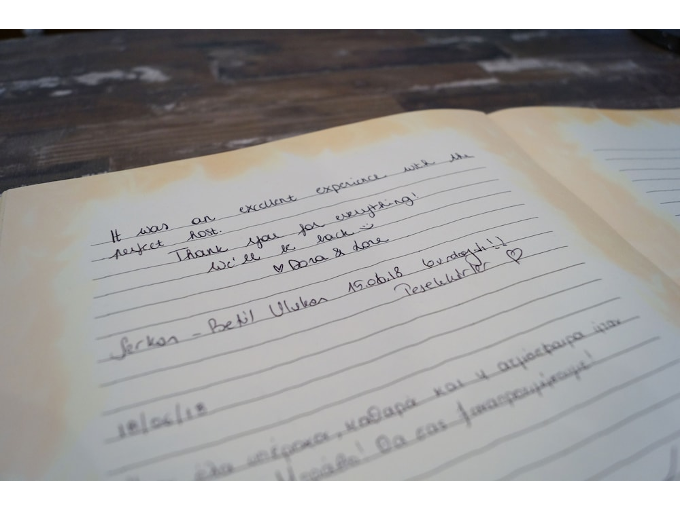 It was an excellent experience with the
perfect host.
Thank you for everything!
We'll be back
♡ Dora & Lore
Serkan - Betil Ulukan 19.06.18 Burdaydı!!
Teşekkürler ♡
18/06/18
όλα υπέροχα, καθαρά και η ατμόσφαιρα ήταν
Μπράβο! Θα σας ξαναπροτιμήσουμε!